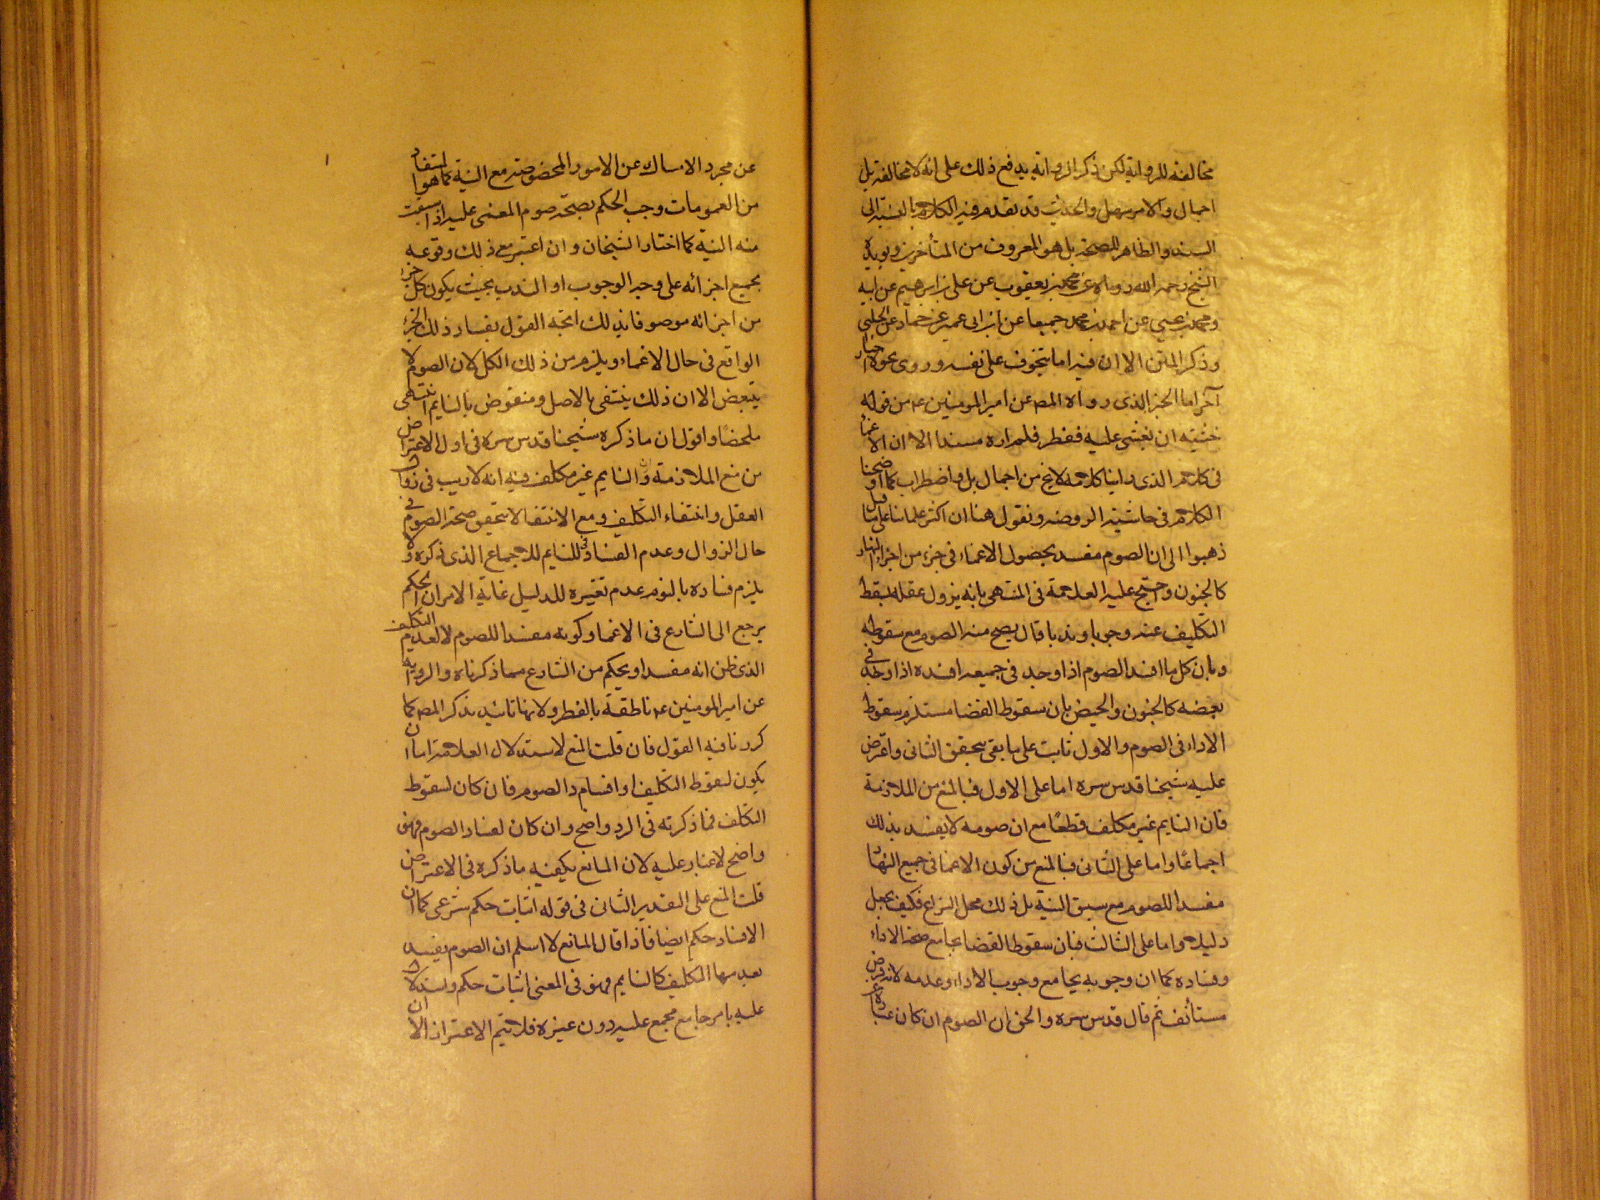 مخالفته للرواية لكن ذكر الرواية يدفع ذلك على انه لا مخالفة بل
اجمال والامر سهل والحديث قد تقدم فيه الكلام بالنسبة الى
السند والظاهر الصحة بل هو المعروف من المتأخرين ويؤيده
الشيخ رحمه الله رواه عن محمد بن يعقوب عن علي بن ابراهيم عن ابيه
ومحمد بن يحيى عن احمد بن محمد جميعا عن ابن ابي عمير عن حماد عن الحلبي
وذكر المتن الا ان فيه اما يتخوف على نفسه وروى نحوه اخبار
آخر اما الخبر الذي رواه المصـ عن امير المومنين ع من قوله
خشيته ان يغشى عليه فيفطر فلم اره مسندا الا ان الاغما
في كلامهم الذي راينا كلامه لا يخ من اجمال بل واضطراب كما اوضحنا
الكلام في حاشية الروضه ونقول هنا ان اكثر علمائنا على ما قيل
ذهبوا الى ان الصوم مفسد بحصول الاغماء في جزء من اجزاء النهار
كالجنون واحتج عليه العلامة في المنتهى بانه يزول عقله فيسقط
التكليف عنه وجوبا وندبا قال يصح منه الصوم مع سقوطه
وبان كل ما افسد الصوم اذا وجد في جميعه افسده اذا وجد في
بعضه كالجنون والحيض بان سقوط القضا مستلزم سقوط
الاداء في الصوم والاول ثابت على ما يقى بتحقق الثاني واعترض
عليه شيخنا قدس سره اما على الاول فبالمنع من الملازمة
فان النايم غير مكلف قطعا مع ان صومه لا يفسد بذلك
اجماعا واما على الثاني فبالمنع من كون الاغما في جميع النهار
مفسدا للصوم مع سبق النية بل ذلك محل النزاع فكيف يجعل
دليلا واما على الثالث فبان سقوط القضا يجامع صحة الاداء
وفساده كما ان وجوبه يجامع وجوب الاداء وعدمه لانه فرض
مستأنف ثم قال قدس سره والحق ان الصوم ان كان عبارة
عن مجرد الامساك عن الامور المخصوصة مع النية كما هو المستفاد
من العمومات وجب الحكم بصحة صوم المغمى عليه اذا سبقت
منه النية كما اختار الشيخان وان اعتبر مع ذلك وقوعه
بجميع اجزائه على وجه الوجوب او الندب بحيث يكون كل جزء
من اجزائه موصوفا بذلك اتجه القول بفساد ذلك الجزء
الواقع في حال الاغماء ويلزم من ذلك الكل لان الصوم لا
يتبعض الا ان ذلك ينتفي بالاصل ومنقوض بالنايم انتهى
ملخصا واقول ان ما ذكره شيخنا قدس سره في اول الاعتراض
من منع الملازمة وان النايم غير مكلف فيه انه لا ريب في زوال
العقل وانتفاء التكليف ومع الانتفا لا يتحقق صحة الصوم في
حال الزوال وعدم الفساد في النايم للاجماع الذي ذكره ولا
يلزم فساده بالنوم عدم تغييره للدليل غاية الامر ان الحكم
يرجع الى الشارع في الاغما وكونه مفسدا للصوم لا لعدم التكليف
الذي ظن انه مفسدا ويحكم من الشارع مما ذكرناه والرواية
عن امير المومنين ع ناطقة بالفطر ولا بها تائيد بذكر المصـ كما
كررنا فيه القول فان قلت المنع لاستدلال العلامة اما ان
يكون لسقوط التكليف او افساد الصوم فان كان لسقوط
التكلف فما ذكرته في الرد واضح وان كان لفساد الصوم فهو
واضح لا غبار عليه لان المانع يكفيه ما ذكره في الاعتراض
قلت المنع على التقدير الثان في قوله اثبات حكم شرعي كما ان
الافساد حكم ايضا فاذا قال المانع لا اسلم ان الصوم يفسد
بعدمها التكليف كالنايم فهو في المعنى اثبات حكم واستدلال
عليه بامر جامع مجمع عليه دون غيره فلا يتم الاعتراذ الا ان